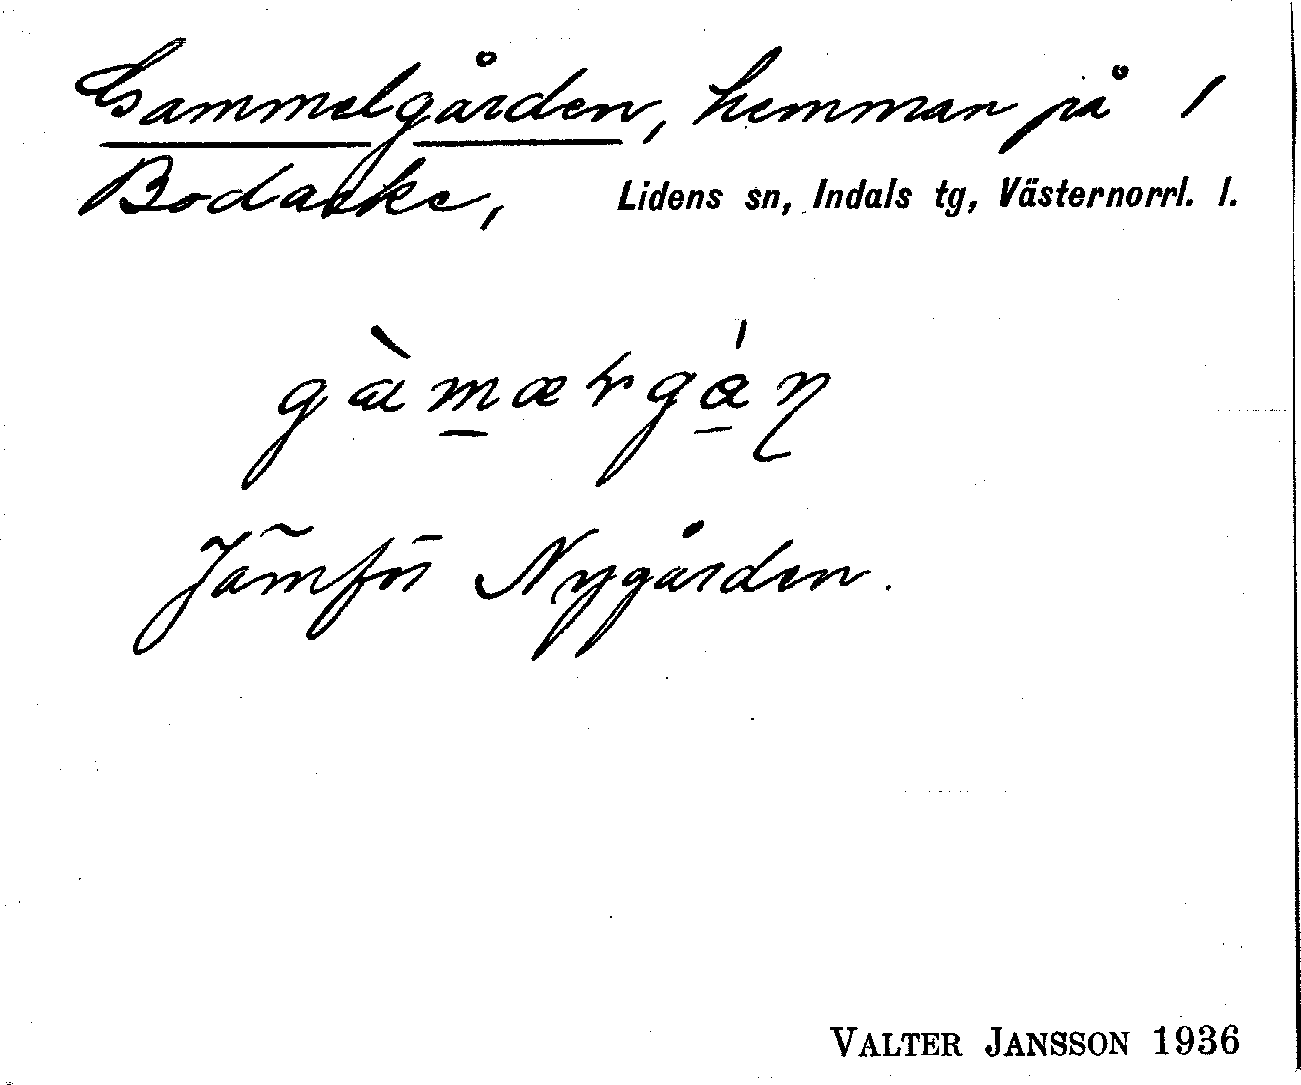 Gammelgården, hemman på /
Bodacke, Lidens sn, Indals tg, Västernorrl. l.
Jämför Nygården.
VALTER JANSSON 1936